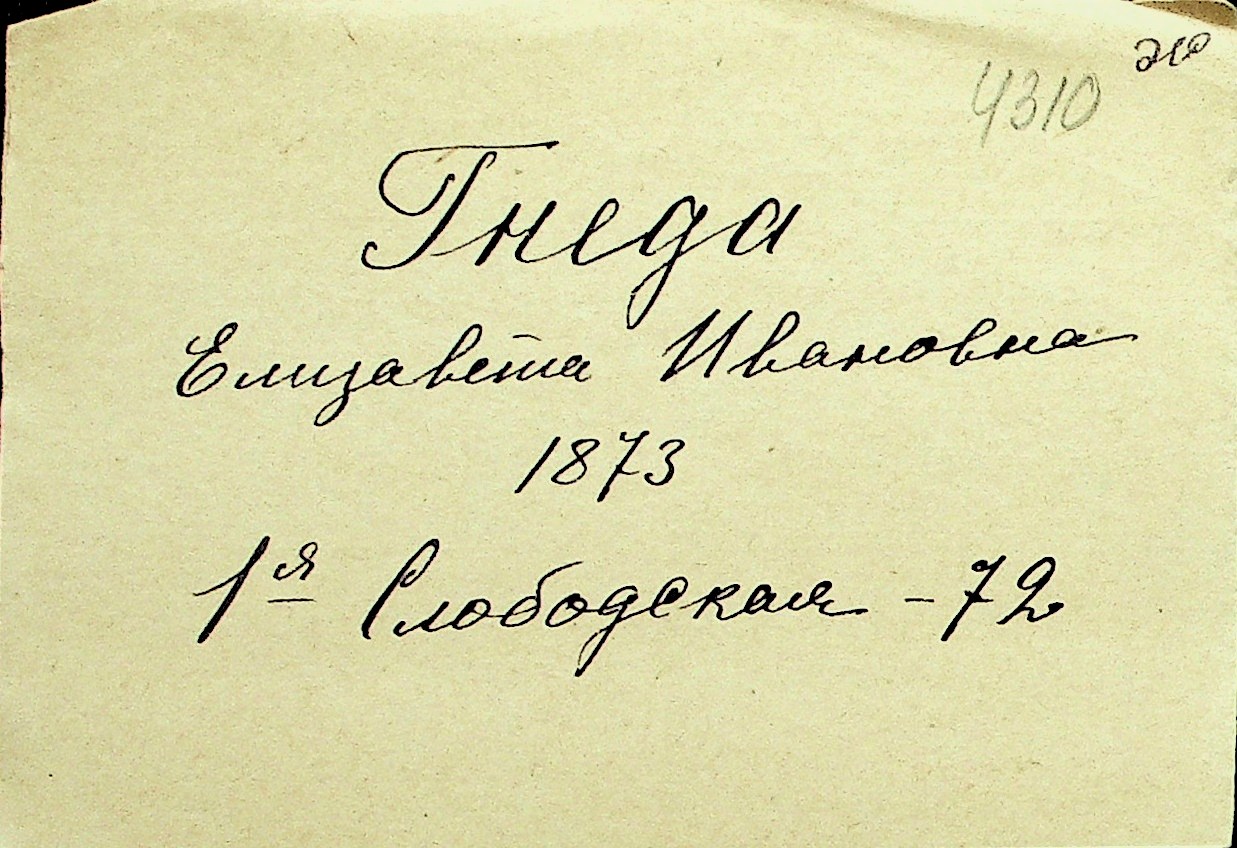 4310
Гнеда
Елизавета Ивановна
1873
1я Слободская - 72